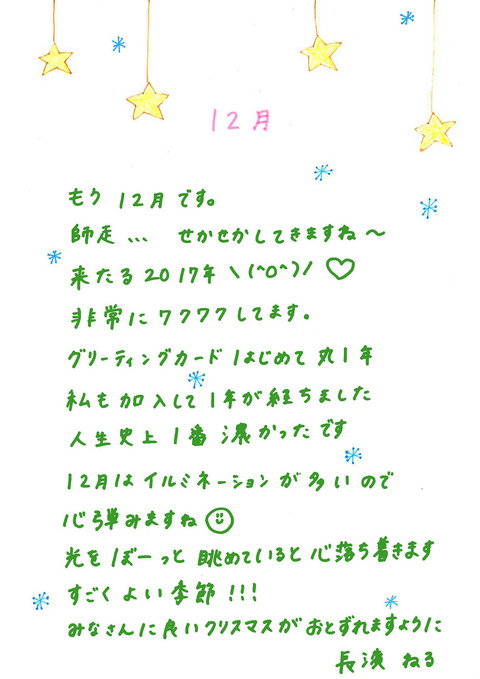 12月
もう 12月です。
師走… せかせかしてきますね〜
来たる2017年 \(^o^)/ ♡
非常にワクワクしてます。
グリーティングカードはじめて丸1年
私も加入して1年が経ちました
人生史上1番濃かったです
12月はイルミネーションが多いので
心弾みますね☺
光をぼーっと眺めていると心落ち着きます
すごくよい季節!!!
みなさんに良いクリスマスがおとずれますように
長濱 ねる